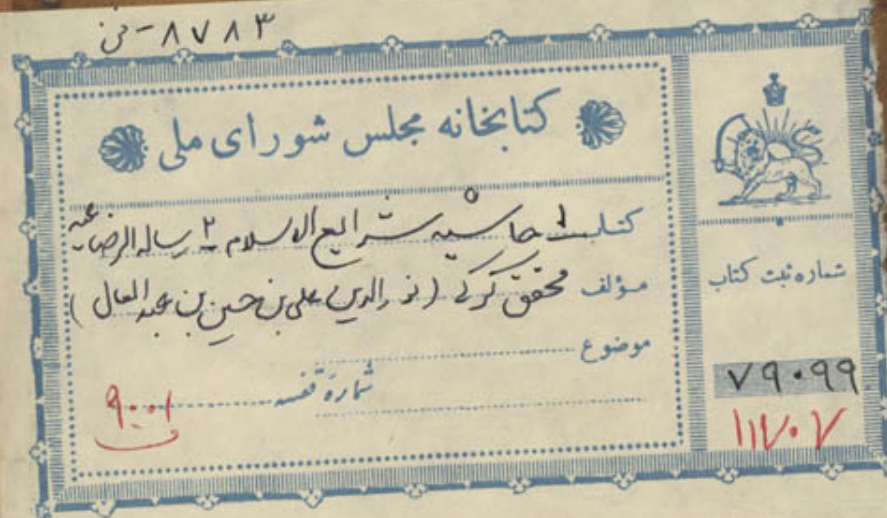 ۸۷۸۳ - فن
کتابخانه مجلس شورای ملی
کتاب ۱ حاشیه شرایع الاسلام ۲ رساله الرضاعیه
مؤلف محقق کرکی (نورالدین علی بن حسین بن عبدالعال)
موضوع
شمارهٔ قفسه ۹۰۰۱
شماره ثبت کتاب
۷۹۰۹۹
۱۱۷۰۷